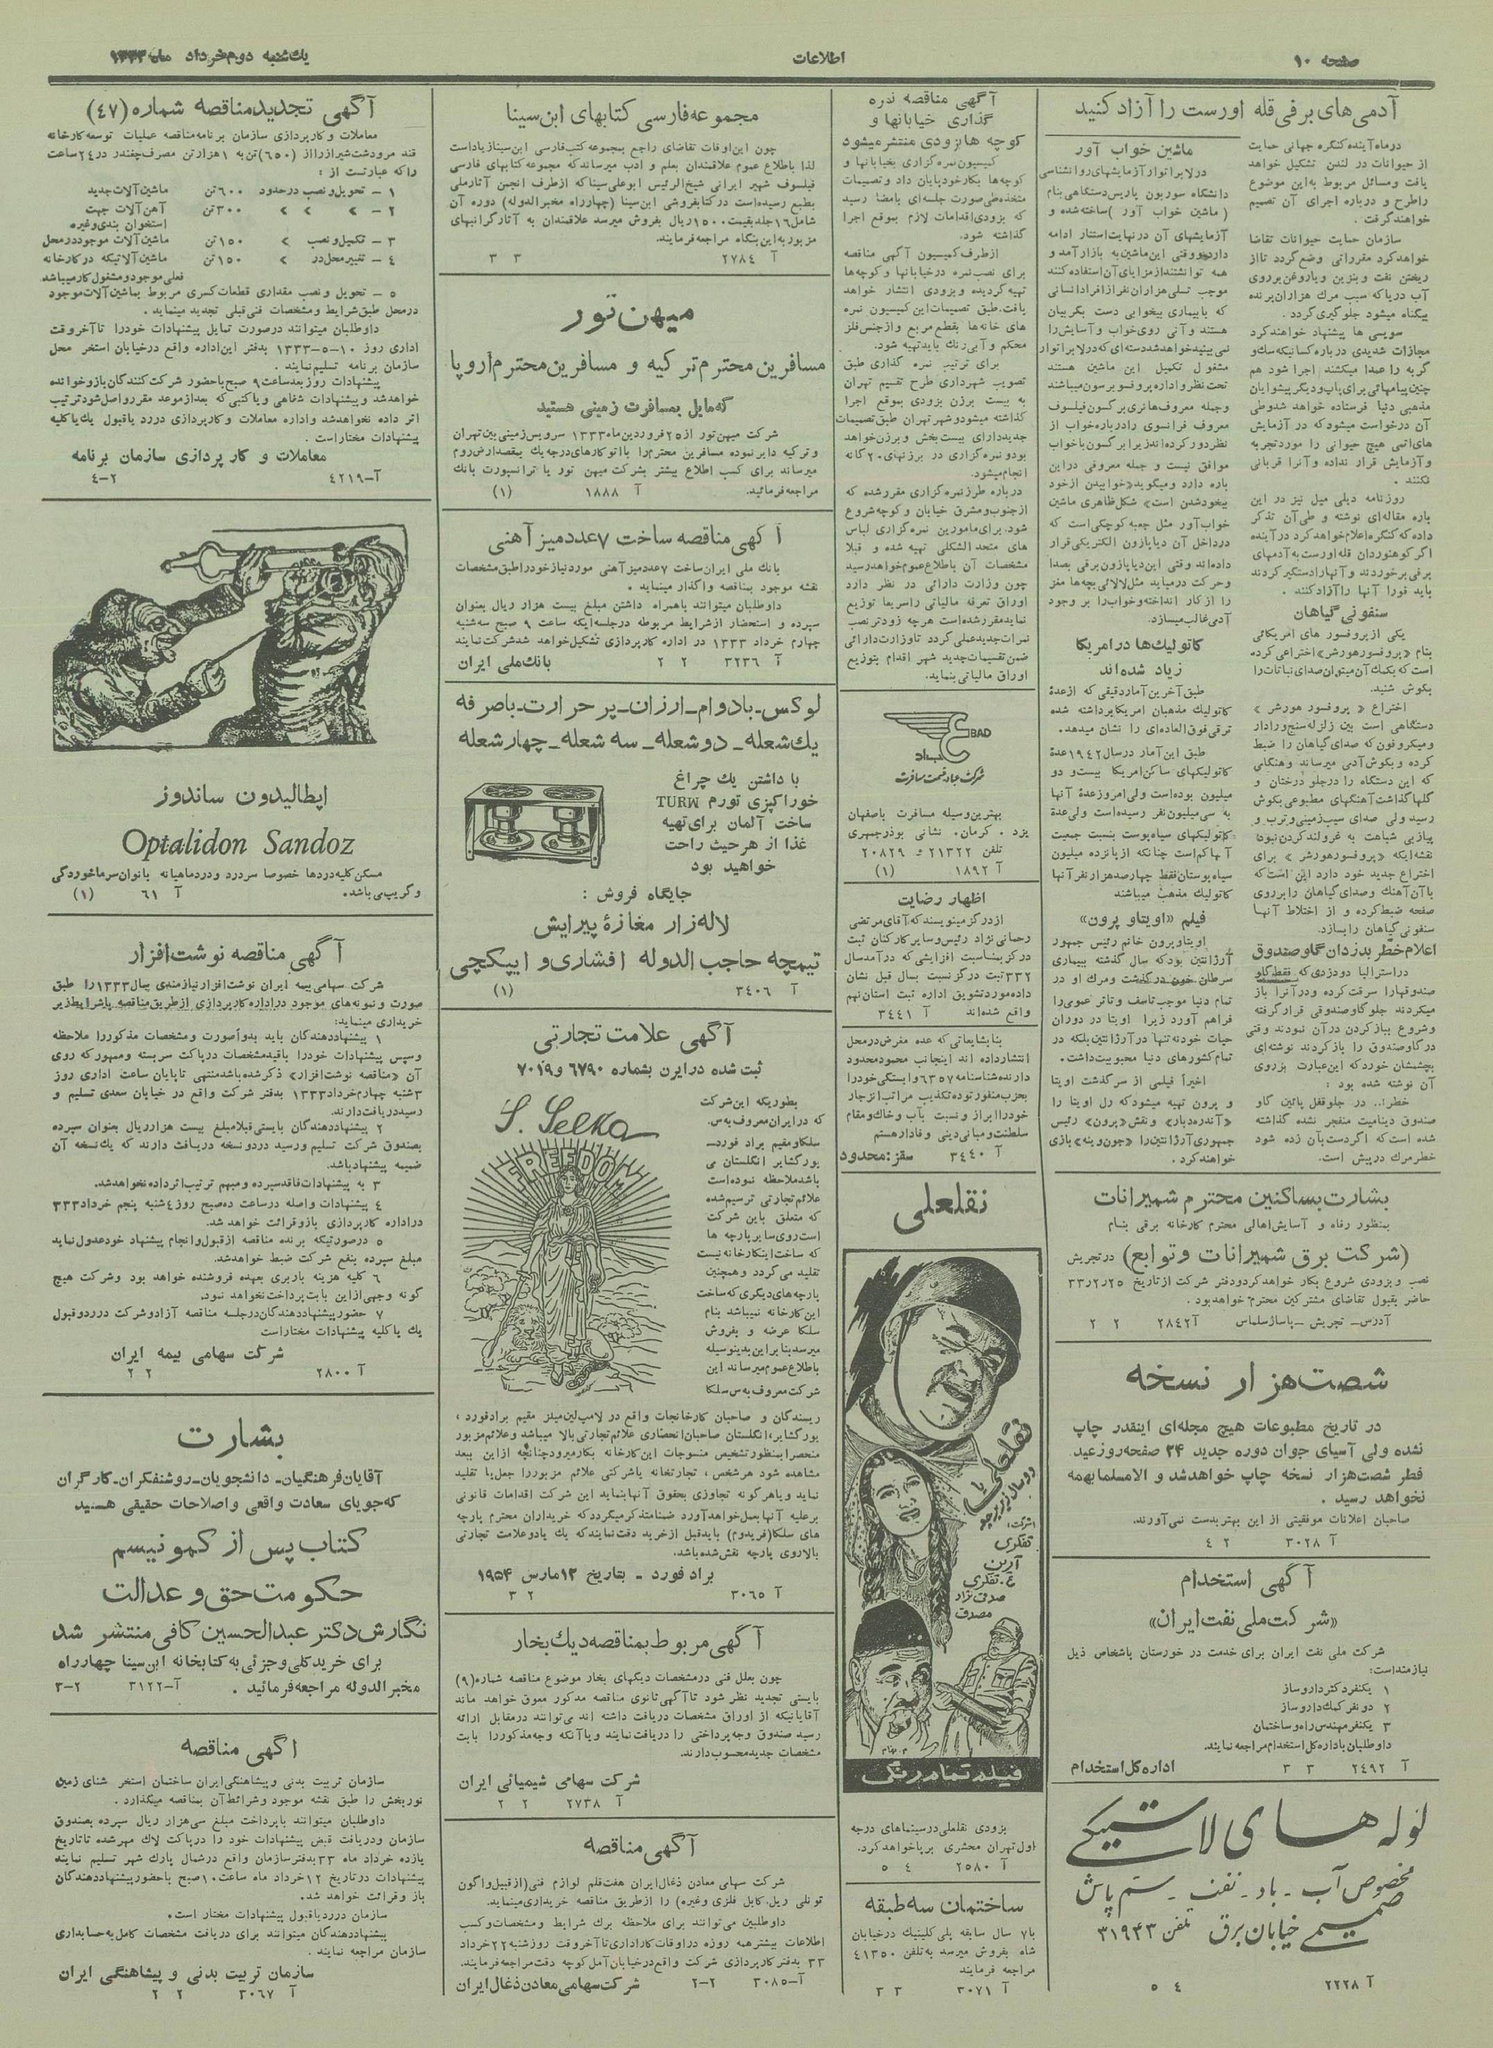 صفحه ۱۰
اطلاعات
یکشنبه دوم خرداد ماه ۱۳۳۳
آدمی‌های برفی قله اورست را آزاد کنید
درماه آینده کنگره جهانی حمایت
از حیوانات در لندن تشکیل خواهد
یافت ومسائل مربوط به این موضوع
راطرح و درباره اجرای آن تصمیم
خواهند گرفت.
سازمان حمایت حیوانات تقاضا
خواهد کرد مقرراتی وضع گردد تا از
ریختن نفت و بنزین ویا روغن بر روی
آب دریا که سبب مرگ هزاران پرنده
بیگناه میشود جلوگیری گردد.
سویسی ها پیشنهاد خواهند کرد
مجازات شدیدی درباره کسانیکه سگ و
گربه را عمدا میکشند اجرا شود هم
چنین پیامهائی برای پاپ و دیگر پیشوایان
مذهبی دنیا فرستاده خواهد شد وطی
آن درخواست میشود که در آزمایش
های اتمی هیچ حیوانی را مورد تجربه
و آزمایش قرار نداده و آنرا قربانی
نکنند.
روزنامه دیلی میل نیز در این
باره مقاله‌ای نوشته و طی آن تذکر
داده که کنگره اعلام خواهد کرد در آینده
اگر کوهنوردان قله اورست به آدمهای
برفی برخوردند و آنها را دستگیر کردند
باید فورا آنها را آزاد کنند.
سنفونی گیاهان
یکی از پروفسور های امریکائی
بنام «پروفسور هورشر» اختراعی کرده
است که بکمک آن میتوان صدای نباتات را
بگوش شنید.
اختراع «پروفسور هورشر»
دستگاهی است بین زلزله سنج و رادار
ومیکروفون که صدای گیاهان را ضبط
کرده و بگوش آدمی میرساند وهنگامی
که این دستگاه را درجلو درختان و
گلها گذاشت آهنگهای مطبوعی بگوش
رسید ولی صدای سیب زمینی و ترب و
پیازبی شباهت به غرولند کردن نبود!
نقشه ایکه «پروفسور هورشر» برای
اختراع جدید خود دارد این است که
با آن آهنگ و صدای گیاهان را برروی
صفحه ضبط کرده و از اختلاط آنها
سنفونی گیاهان را بسازد.
اعلام خطر بدزدان گاو صندوق
در استرالیا دو دزدی که فقط گاو
صندوقها را سرقت کرده و در آنرا باز
میکردند جلو گاو صندوقی قرار گرفته
وشروع بباز کردن در آن نمودند وقتی
در گاو صندوق را باز کردند نوشته‌ای
بچشمشان خورد که این عبارت بر روی
آن نوشته شده بود:
خطر!.. در جلو قفل پائین گاو
صندوق دینامیت منفجر نشده گذاشته
شده است که اگر دست بآن زده شود
خطر مرگ در پیش است.
ماشین خواب آور
در لابراتوار آزمایشهای روانشناسی
دانشگاه سوربون پاریس دستگاهی بنام
(ماشین خواب آور) ساخته شده و
آزمایشهای آن در نهایت استتار ادامه
دارد و وقتی این ماشین به بازار آمد و
همه توانستند از مزایای آن استفاده کنند
موجب تسلی هزاران نفر از افراد انسانی
که با بیماری بیخوابی دست بگریبان
هستند و آنی روی خواب و آسایش را
نمی بینید خواهد شد دسته‌ای که در لابراتوار
مشغول تکمیل این ماشین هستند
تحت نظر و اداره پروفسور برسون میباشند
وجمله معروف هانری برگسون فیلسوف
معروف فرانسوی را درباره خواب از
نظر دور کرده اند زیرا برگسون با خواب
موافق نیست و جمله معروفی در این
باره دارد و میگوید «خوابیدن از خود
بیخود شدن است» شکل ظاهری ماشین
خواب آور مثل جعبه کوچکی است که
در داخل آن دیاپازون الکتریکی قرار
داده اند وقتی این دیاپازون برقی بصدا
وحرکت درمیاید مثل لالائی بچه‌ها مغز
را از کار انداخته وخواب را بر وجود
آدمی غالب میسازد.
کاتولیک‌ها در امریکا
زیاد شده اند
طبق آخرین آمار دقیقی که از عدهٔ
کاتولیک مذهبان امریکا برداشته شده
ترقی فوق العاده‌ای را نشان میدهد.
طبق این آمار در سال ۱۹۴۲ عدهٔ
کاتولیکهای ساکن امریکا بیست و دو
میلیون بوده است ولی امروز عدهٔ آنها
به سی میلیون نفر رسیده است ولی عدهٔ
کاتولیکهای سیاه پوست بنسبت جمعیت
آنها کم است چنانکه از پانزده میلیون
سیاه پوستان فقط چهارصد هزار نفر آنها
کاتولیک مذهب میباشند
فیلم «اویتاو پرون»
اویتا پرون خانم رئیس جمهور
آرژانتین بود که سال گذشته ببیماری
سرطان خون در گذشت و مرگ او در
تمام دنیا موجب تاسف و تاثر عمومی را
فراهم آورد زیرا اویتا در دوران
حیات خود نه تنها در آرژانتین بلکه در
تمام کشورهای دنیا محبوبیت داشت.
اخیراً فیلمی از سرگذشت اویتا
و پرون تهیه میشود که رل اویتا را
«آندره دبار» و نقش «پرون» رئیس
جمهوری آرژانتین را «جون وینه» بازی
خواهند کرد.
بشارت بساکنین محترم شمیرانات
بمنظور رفاه و آسایش اهالی محترم کارخانه برقی بنام
(شرکت برق شمیرانات و توابع) در تجریش
نصب و بزودی شروع بکار خواهد کرد و دفتر شرکت از تاریخ ۳۳٫۲٫۲۵
حاضر بقبول تقاضای مشترکین محترم خواهد بود.
آدرس - تجریش - پاساژ سلماس آ ۲۸۴۲ ۲ ۲
شصت هزار نسخه
در تاریخ مطبوعات هیچ مجله‌ای اینقدر چاپ
نشده ولی آسیای جوان دوره جدید ۲۴ صفحه روز عید
فطر شصت هزار نسخه چاپ خواهد شد و الامسلما بهمه
نخواهد رسید.
صاحبان اعلانات موفقیتی از این بهتر بدست نمی آورند.
آ ۳۰۲۸ ۲ ۴
آگهی استخدام
«شرکت ملی نفت ایران»
شرکت ملی نفت ایران برای خدمت در خوزستان باشخاص ذیل
نیازمند است:
۱ یکنفر دکتر داروساز
۲ دو نفر کمک داروساز
۳ یکنفر مهندس راه و ساختمان
داوطلبان باداره کل استخدام مراجعه نمایند.
آ ۲۴۹۲ ۳ ۳ اداره کل استخدام
لوله های لاستیکی
مخصوص آب - باد - نفت - سم پاش
صمیمی خیابان برق تلفن ۳۱۹۴۳
آ ۲۲۲۸ ۴ ۵
آگهی مناقصه نمره
گذاری خیابانها و
کوچه هابزودی منتشر میشود
کمیسیون نمره گزاری بخیابانها و
کوچه‌ها بکار خود پایان داد و تصمیمات
متخذه طی صورت جلسه‌ای بامضا رسید
که بزودی اقدامات لازم بموقع اجرا
گذاشته شود.
از طرف کمیسیون آگهی مناقصه
برای نصب نمره در خیابانها و کوچه‌ها
تهیه گردیده و بزودی انتشار خواهد
یافت. طبق تصمیمات این کمیسیون نمره
های خانه‌ها بقطع مربع و از جنس فلز
محکم و آبی رنگ باید تهیه شود.
برای ترتیب نمره گذاری طبق
تصویب شهرداری طرح تقسیم تهران
به بیست برزن بزودی بموقع اجرا
گذاشته میشود و شهر تهران طبق تصمیمات
جدید دارای بیست بخش و برزن خواهد
بود و نمره گزاری در برزنهای ۲۰ گانه
انجام میشود.
درباره طرز نمره گزاری مقرر شده که
از جنوب و مشرق خیابان و کوچه شروع
شود. برای مامورین نمره گزاری لباس
های متحد الشکلی تهیه شده و قبلا
مشخصات آن باطلاع عموم خواهد رسید
چون وزارت دارائی در نظر دارد
اوراق تعرفه مالیاتی را سریعا توزیع
نماید مقرر شده است هر چه زودتر نصب
نمرات جدید عملی گردد تا وزارت دارائی
ضمن تقسیمات جدید شهر اقدام بتوزیع
اوراق مالیاتی بنماید.
EBAD
عباد
شرکت عباد قسمت مسافرت
بهترین وسیله مسافرت باصفهان
یزد. کرمان. نشانی بوذرجمهری
تلفن ۲۱۳۲۲ و ۲۰۸۲۹
آ ۱۸۹۲ (۱)
اظهار رضایت
از درگز مینویسند که آقای مرتضی
رحمانی نژاد رئیس و سایر کارکنان ثبت
درگز بمناسبت افزایشی که در آمد سال
۳۳۲ ثبت درگز نسبت بسال قبل نشان
داده مورد تشویق اداره ثبت استان نهم
واقع شده اند آ ۳۴۴۱
بنا بشایعاتی که عده مغرض در محل
انتشار داده اند اینجانب محمود محدود
دارنده شناسنامه ۶۳۵۷ وابستگی خود را
بحزب منفور توده تکذیب مراتب انزجار
خود را ابراز و نسبت بآب و خاک و مقام
سلطنت و مبانی دینی وفادار هستم
آ ۳۴۴۰ سقز: محدود
نقلعلی
نقلعلی
یا
دو سال زیر پرچم
اشتراک:
تفکری
آرین
ع. تفکری
صدقی نژاد
مصدق
فیلم تمام رنگی
بزودی نقلعلی در سینماهای درجه
اول تهران محشری برپا خواهد کرد.
آ ۲۵۸۰ ۴ ۵
ساختمان سه طبقه
با ۷ سال سابقه پلی کلینیک در خیابان
شاه بفروش میرسد به تلفن ۴۱۳۵۰
مراجعه فرمایند
آ ۳۰۷۱ ۳ ۳
مجموعه فارسی کتابهای ابن سینا
چون این اوقات تقاضای راجع بمجموعه کتب فارسی ابن سینا زیاد است
لذا باطلاع عموم علاقمندان بعلم و ادب میرساند که مجموعه کتابهای فارسی
فیلسوف شهیر ایرانی شیخ الرئیس ابوعلی سینا که از طرف انجمن آثار ملی
بطبع رسیده است در کتابفروشی ابن سینا (چهارراه مخبرالدوله) دوره آن
شامل ۱۶ جلد بقیمت ۱۵۰۰ ریال بفروش میرسد علاقمندان به آثار گرانبهای
مزبور به این بنگاه مراجعه فرمایند.
آ ۲۷۸۴ ۳ ۳
میهن تور
مسافرین محترم ترکیه و مسافرین محترم اروپا
که مایل بمسافرت زمینی هستید
شرکت میهن تور از ۲۵ فروردین ماه ۱۳۳۳ سرویس زمینی بین تهران
و ترکیه دایر نموده مسافرین محترم را با اتوکارهای درجه یک بمقصد ارض روم
میرساند برای کسب اطلاع بیشتر بشرکت میهن تور یا ترانسپورت بانک
مراجعه فرمائید. آ ۱۸۸۸ (۱)
آگهی مناقصه ساخت ۷ عدد میز آهنی
بانک ملی ایران ساخت ۷ عدد میز آهنی مورد نیاز خود را طبق مشخصات
نقشه موجود بمناقصه واگذار مینماید.
داوطلبان میتوانند با همراه داشتن مبلغ بیست هزار ریال بعنوان
سپرده و استحضار از شرایط مربوطه در جلسه ایکه ساعت ۹ صبح سه شنبه
چهارم خرداد ۱۳۳۳ در اداره کارپردازی تشکیل خواهد شد شرکت نمایند
آ ۳۲۳۶ ۲ ۲ بانک ملی ایران
لوکس - بادوام - ارزان - پر حرارت - باصرفه
یک شعله - دو شعله - سه شعله - چهار شعله
با داشتن یک چراغ
خوراکپزی تورم TURM
ساخت آلمان برای تهیه
غذا از هر حیث راحت
خواهید بود
جایگاه فروش:
لاله زار مغازهٔ پیرایش
تیمچه حاجب الدوله افشاری و ایپکچی
آ ۳۴۰۶ (۱)
آگهی علامت تجارتی
ثبت شده در ایران بشماره ۶۷۹۰ و ۷۰۱۹
S. Selka
FREEDOM
بطوریکه این شرکت
که در ایران معروف به س.
سلکا و مقیم براد فورد-
یورکشایر انگلستان می
باشد ملاحظه نموده است
علائم تجارتی ترسیم شده
که متعلق باین شرکت
است روی سایر پارچه ها
که ساخت این کارخانه نیست
تقلید می گردد و همچنین
پارچه های دیگری که ساخت
این کارخانه نمیباشد بنام
سلکا عرضه و بفروش
میرسد بنا براین بدینوسیله
باطلاع عموم میرساند این
شرکت معروف به س سلکا
ریسندگان و صاحبان کارخانجات واقع در لامب لین میلز مقیم برادفورد،
یورکشایر، انگلستان صاحبان انحصاری علائم تجارتی بالا میباشد و علائم مزبور
منحصرا بمنظور تشخیص منسوجات این کارخانه بکار میرود چنانچه از این ببعد
مشاهده شود هر شخص، تجارتخانه یا شرکتی علائم مزبور را جعل یا تقلید
نماید و یا هر گونه تجاوزی بحقوق آنها بنماید این شرکت اقدامات قانونی
بر علیه آنها بعمل خواهد آورد ضمنا متذکر میگردد که خریداران محترم پارچه
های سلکا (فریدوم) باید قبل از خرید دقت نمایند که یک یا دو علامت تجارتی
بالا روی پارچه نقش شده باشد.
براد فورد - بتاریخ ۱۲ مارس ۱۹۵۴
آ ۳۰۶۵ ۲ ۳
آگهی مربوط بمناقصه دیک بخار
چون بعلل فنی در مشخصات دیگهای بخار موضوع مناقصه شماره (۹)
بایستی تجدید نظر شود تا آگهی ثانوی مناقصه مذکور معوق خواهد ماند
آقایانیکه از اوراق مشخصات دریافت داشته اند می توانند در مقابل ارائه
رسید صندوق وجه پرداختی را دریافت نمایند و یا آنکه وجه مذکور را بابت
مشخصات جدید محسوب دارند.
شرکت سهامی شیمیائی ایران
آ ۲۷۳۸ ۲ ۲
آگهی مناقصه
شرکت سهامی معادن ذغال ایران هفت قلم لوازم فنی (از قبیل واگون
تونلی ریل. کابل فلزی وغیره) را از طریق مناقصه خریداری مینماید.
داوطلبین می توانند برای ملاحظه برگ شرایط و مشخصات و کسب
اطلاعات بیشتر همه روزه در اوقات کار اداری تا آخر وقت روز شنبه ۲۲ خرداد
۳۳ بدفتر کارپردازی شرکت واقع در خیابان آمل کوچه دفت مراجعه فرمایند.
آ-۳۰۸۵ ۲-۲ شرکت سهامی معادن ذغال ایران
آگهی تجدید مناقصه شماره (۴۷)
معاملات و کارپردازی سازمان برنامه مناقصه عملیات توسعه کارخانه
قند مرودشت شیراز را از (۶۵۰) تن به ۱ هزار تن مصرف چغندر در ۲۴ ساعت
را که عبارتست از:
۱ - تحویل و نصب در حدود ۶۰۰ تن ماشین آلات جدید
۲ - » » » ۳۰۰ تن آهن آلات جهت
استخوان بندی وغیره
۳ - تکمیل و نصب » ۱۵۰ تن ماشین آلات موجود در محل
۴ - تغییر محل در » ۱۵۰ تن ماشین آلاتیکه در کارخانه
فعلی موجود و مشغول کار میباشد
۵ - تحویل و نصب مقداری قطعات کسری مربوط بماشین آلات موجود
در محل طبق شرایط و مشخصات فنی قبلی تجدید مینماید.
داوطلبان میتوانند در صورت تمایل پیشنهادات خود را تا آخر وقت
اداری روز ۱۰-۵-۱۳۳۳ بدفتر این اداره واقع در خیابان استخر محل
سازمان برنامه تسلیم نمایند.
پیشنهادات روز بعد ساعت ۹ صبح با حضور شرکت کنندگان باز و خوانده
خواهد شد و پیشنهادات شفاهی و یا کتبی که بعد از موعد مقرر واصل شود ترتیب
اثر داده نخواهد شد و اداره معاملات و کارپردازی در رد یا قبول یک یا کلیه
پیشنهادات مختار است.
معاملات و کارپردازی سازمان برنامه
آ-۴۲۱۹ ۲-۴
اپطالیدون ساندوز
Optalidon Sandoz
مسکن کلیه دردها خصوصا سردرد و درد ماهیانه بانوان سرماخوردگی
وگریپ می باشد. آ ۶۱ (۱)
آگهی مناقصه نوشت افزار
شرکت سهامی بیمه ایران نوشت افزار نیازمندی سال ۱۳۳۳ را طبق
صورت و نمونه های موجود در اداره کارپردازی از طریق مناقصه با شرایط زیر
خریداری مینماید:
۱ پیشنهاد دهندگان باید بدوا صورت و مشخصات مذکور را ملاحظه
وسپس پیشنهادات خود را با قید مشخصات در پاکت سربسته و ممهور که روی
آن «مناقصه نوشت افزار» ذکر شده باشد منتهی تا پایان ساعت اداری روز
۳ شنبه چهارم خرداد ۱۳۳۳ بدفتر شرکت واقع در خیابان سعدی تسلیم و
رسید دریافت دارند.
۲ پیشنهاد دهندگان بایستی قبلا مبلغ بیست هزار ریال بعنوان سپرده
بصندوق شرکت تسلیم و رسید در دو نسخه دریافت دارند که یک نسخه آن
ضمیمه پیشنهاد باشد.
۳ به پیشنهادات فاقد سپرده و مبهم ترتیب اثر داده نخواهد شد.
۴ پیشنهادات واصله در ساعت ده صبح روز ۴ شنبه پنجم خرداد ۳۳۳
در اداره کارپردازی باز و قرائت خواهد شد.
۵ در صورتیکه برنده مناقصه از قبول و انجام پیشنهاد خود عدول نماید
مبلغ سپرده بنفع شرکت ضبط خواهد شد.
۶ کلیه هزینه باربری بعهده فروشنده خواهد بود و شرکت هیچ
گونه وجهی از این بابت پرداخت نخواهد نمود.
۷ حضور پیشنهاد دهندگان در جلسه مناقصه آزاد و شرکت در رد و قبول
یک یا کلیه پیشنهادات مختار است
شرکت سهامی بیمه ایران
آ ۲۸۰۰ ۲ ۲
بشارت
آقایان فرهنگیان - دانشجویان - روشنفکران - کارگران
که جویای سعادت واقعی و اصلاحات حقیقی هستید
کتاب پس از کمونیسم
حکومت حق و عدالت
نگارش دکتر عبدالحسین کافی منتشر شد
برای خرید کلی و جزئی به کتابخانه ابن سینا چهارراه
مخبرالدوله مراجعه فرمائید. آ-۳۱۲۲ ۲-۳
آگهی مناقصه
سازمان تربیت بدنی و پیشاهنگی ایران ساختمان استخر شنای زمین
نوربخش را طبق نقشه موجود و شرائط آن بمناقصه میگذارد.
داوطلبان میتوانند با پرداخت مبلغ سی هزار ریال سپرده بصندوق
سازمان و دریافت قبض پیشنهادات خود را در پاکت لاک مهر شده تا تاریخ
یازده خرداد ماه ۳۳ بدفتر سازمان واقع در شمال پارک شهر تسلیم نمایند
پیشنهادات در تاریخ ۱۲ خرداد ماه ساعت ۱۰ صبح با حضور پیشنهاد دهندگان
باز و قرائت خواهد شد.
سازمان در رد یا قبول پیشنهادات مختار است.
پیشنهاد دهندگان میتوانند برای دریافت مشخصات کامل به حسابداری
سازمان مراجعه نمایند.
سازمان تربیت بدنی و پیشاهنگی ایران
آ ۳۰۶۷ ۲ ۲